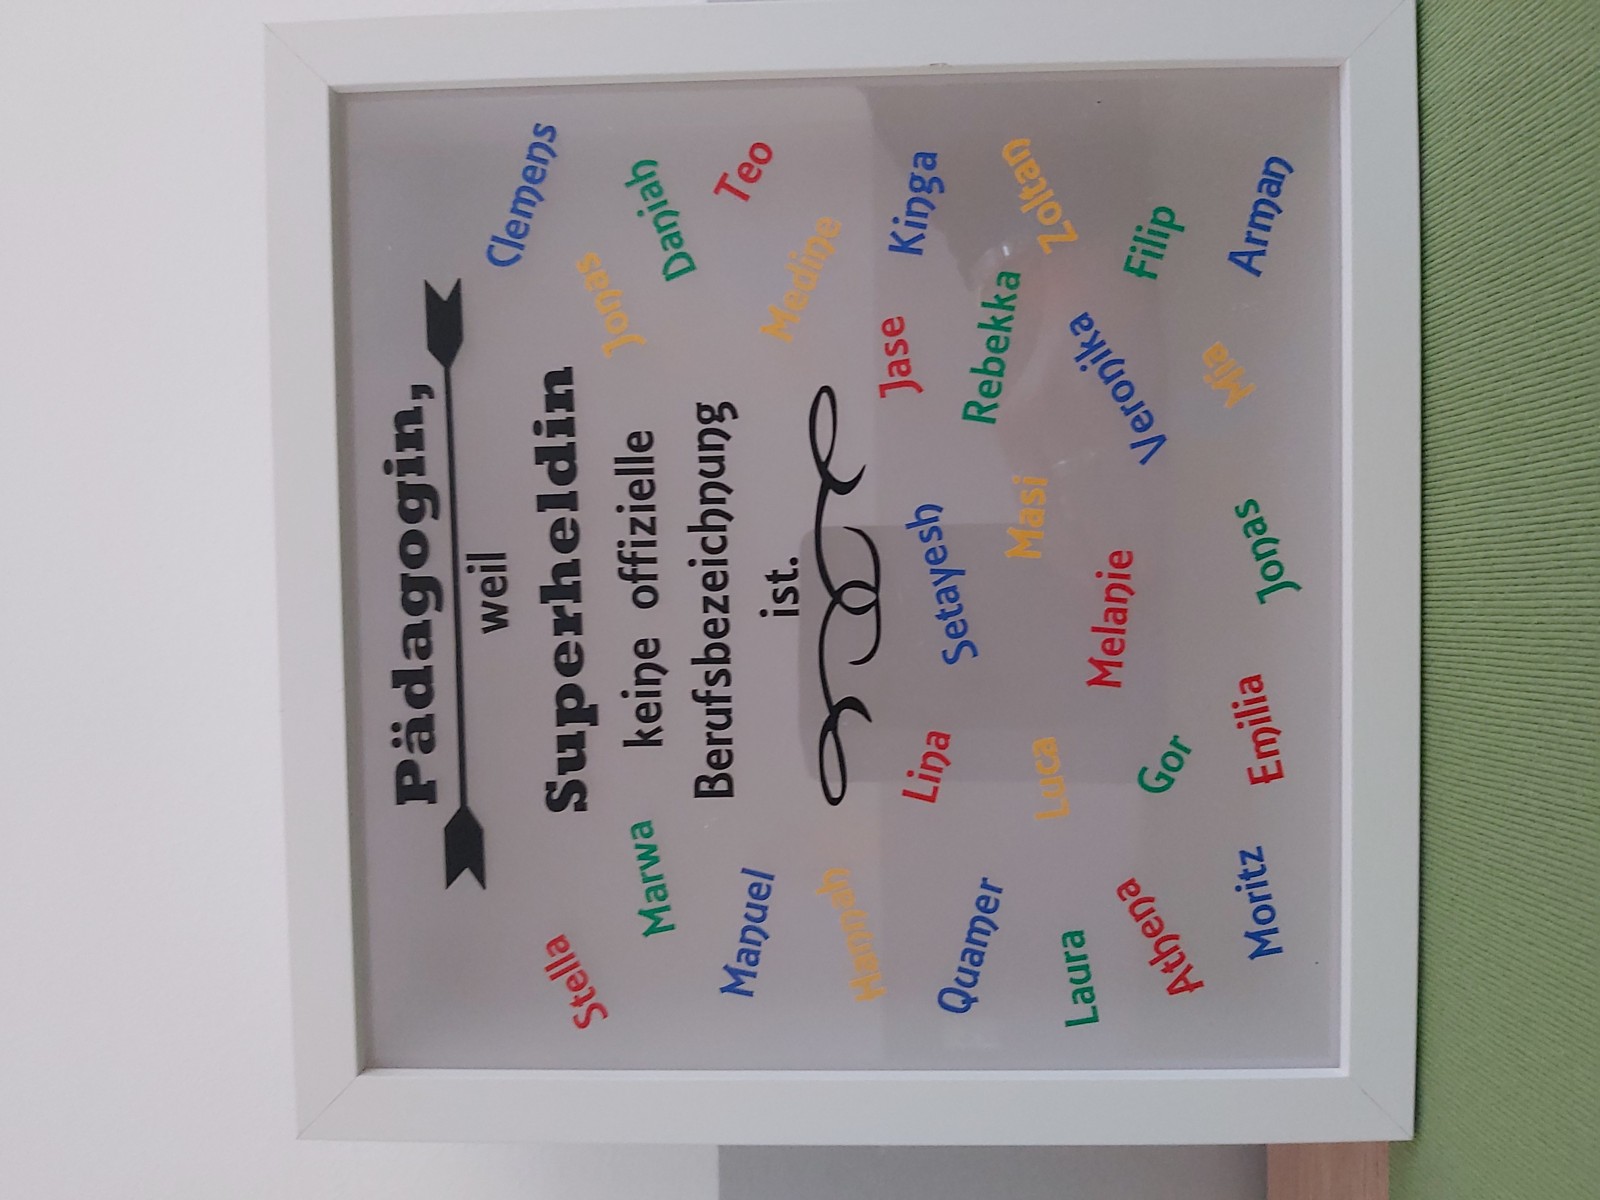 Pädagogin,
weil
Superheldin
keine offizielle
Berufsbezeichnung
ist.
Clemens
Stella
Jonas
Marwa
Daniah
Manuel
Teo
Medine
Hannah
Lina
Setayesh
Jase
Kinga
Quamer
Luca
Masi
Rebekka
Zoltan
Laura
Melanie
Veronika
Filip
Athena
Gor
Mia
Arman
Moritz
Emilia
Jonas